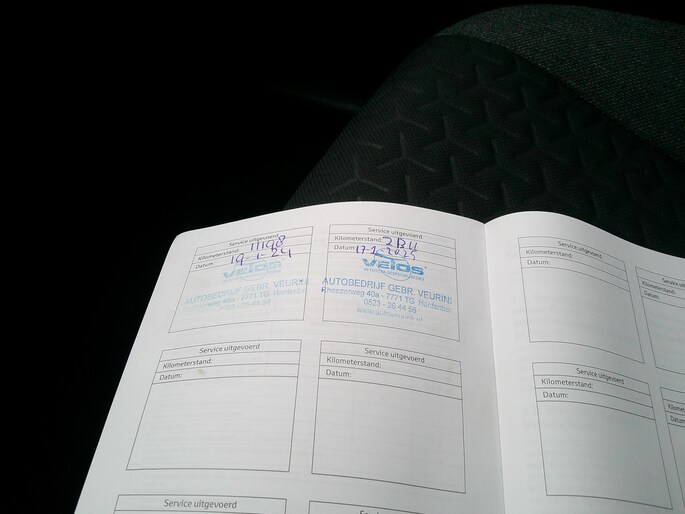 Service uitgevoerd
Kilometerstand: 11198
Datum: 19-1-24
Velos
AUTOBEDRIJF GEBR. VEURIN
Rheezerweg 40a - 7771 TG Hardenber
Service uitgevoerd
Kilometerstand:
Datum: 17-1-2025
Velos
AUTOBEDRIJF GEBR. VEURIN
Rheezerweg 40a - 7771 TG Hardenber
0523 - 26 44 56
Service uitgevoerd
Kilometerstand:
Datum:
Service uitgevoerd
Kilometerstand:
Datum:
Service uitgevoerd
Service uitgevoerd
Kilometerstand:
Datum:
Service uit
Kilometerstand:
Datum:
Service uitgevoerd
Kilometerstand:
Datum:
Kilomet
Datum: